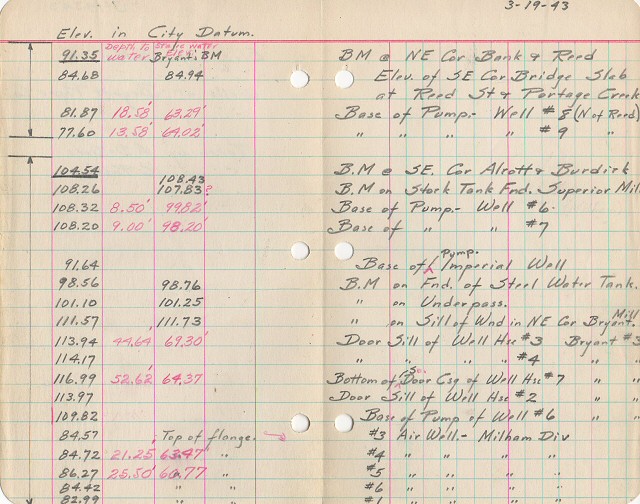 3-19-43
Elev. in City Datum.
Depth to Water Static Water Elev.
91.35 Bryant. BM B M @ NE Cor Bank & Reed
84.68 84.94 Elev. of SE Cor Bridge Slab
at Reed St & Portage Creek
81.87 18.58' 63.29' Base of Pump.- Well #8 (Not Reed)
77.60 13.58' 64.02' " " " " #9
104.54 B.M @ SE. Cor Alcott & Burdick
108.43
108.26 107.83? B M on Stock Tank Fnd. Superior Mil
108.32 8.50' 99.82' Base of Pump.- Well #6.
108.20 9.00' 98.20' Base of " " #7
91.64 Base of Pump. Imperial Well
98.56 98.76 B.M on Fnd. of Steel Water Tank.
101.10 101.25 " on Underpass.
111.57 111.73 " on Sill of Wnd in NE Cor Bryant Mill
113.94 44.64' 69.30' Door Sill of Well Hse #3 Bryant #3
114.17 " " " " #4 " "
116.99 52.62' 64.37 Bottom of So. Door Csg of Well Hse #7 " "
113.97 Door Sill of Well Hse #2 " "
109.82 Base of Pump of Well #6 " "
84.57 Top of flange. #3 Air Well.- Milham Div
84.72 21.25 63.47' " #4 " " "
86.27 25.50' 60.77 " #5 " " "
84.42 " #6 " " "
82.99 " #1 " " "